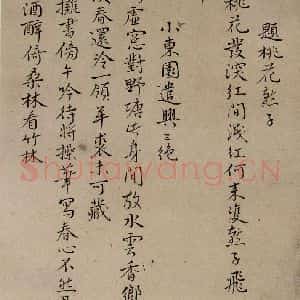 題桃花燕子
桃花發深紅間淺紅何来雙燕子飛
小東園遣興三絕
虛窓對野塘此身閒放水雲鄉
春還冷一領羊裘手可藏
擁書傍午吟待將操筆寫春心不然
酒醉倚桑林看竹林
Shufawang.CN